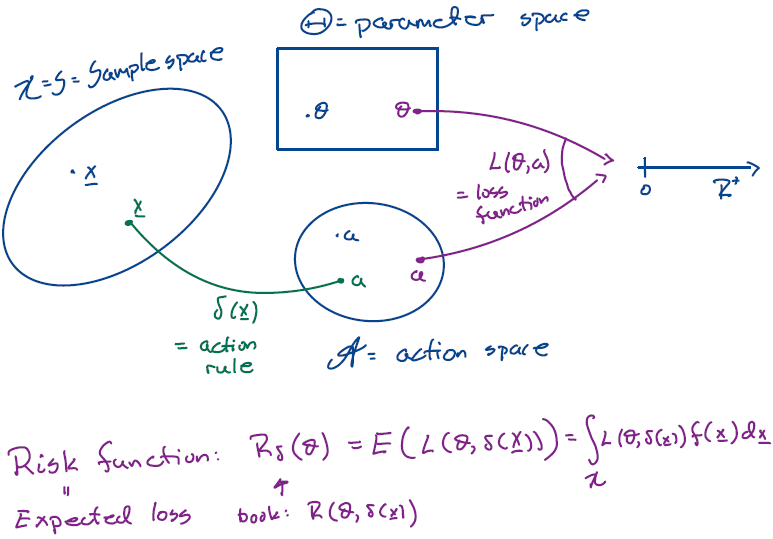 Θ = parameter space
𝒳 = S = Sample space
.θ θ
.x
x
L(θ,a)
= loss
function
0 R⁺
.a
a a
δ(x)
= action
rule
𝒜 = action space
Risk function: R_δ(θ) = E(L(θ, δ(X))) = ∫_𝒳 L(θ, δ(x)) f(x) dx
"
Expected loss book: R(θ, δ(x))